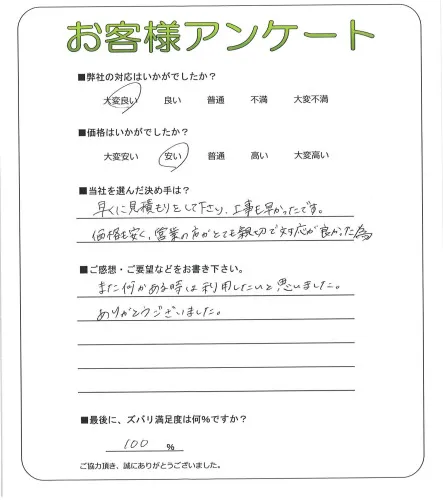 お客様アンケート
■弊社の対応はいかがでしたか?
大変良い 良い 普通 不満 大変不満
■価格はいかがでしたか?
大変安い 安い 普通 高い 大変高い
■当社を選んだ決め手は?
早くに見積もりをして下さり、工事も早かったです。
価格も安く、営業の方がとても親切で対応が良かった為
■ご感想・ご要望などをお書き下さい。
また何かある時は利用したいと思いました。
ありがとうございました。
■最後に、ズバリ満足度は何%ですか?
100 %
ご協力頂き、誠にありがとうございました。